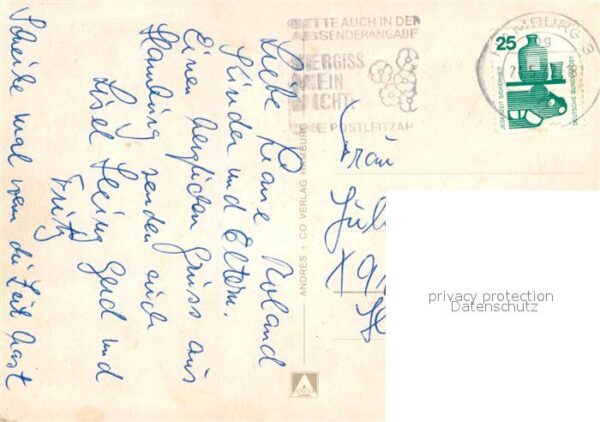 BITTE AUCH IN DER
ABSENDERANGABE
VERGISS
MEIN
NICHT
DIE POSTLEITZAHL
HAMBURG 3
25
JEDERZEIT SICHERHEIT
DEUTSCHE BUNDESPOST
Liebe Roland
Kinder und Eltern.
Einen herzlichen Gruss aus
Hamburg senden euch
Lisel Heinz Gerd und
Fritz
Schreibe mal wenn du Zeit hast
ANDRES + CO VERLAG HAMBURG
Frau
privacy protection
Datenschutz